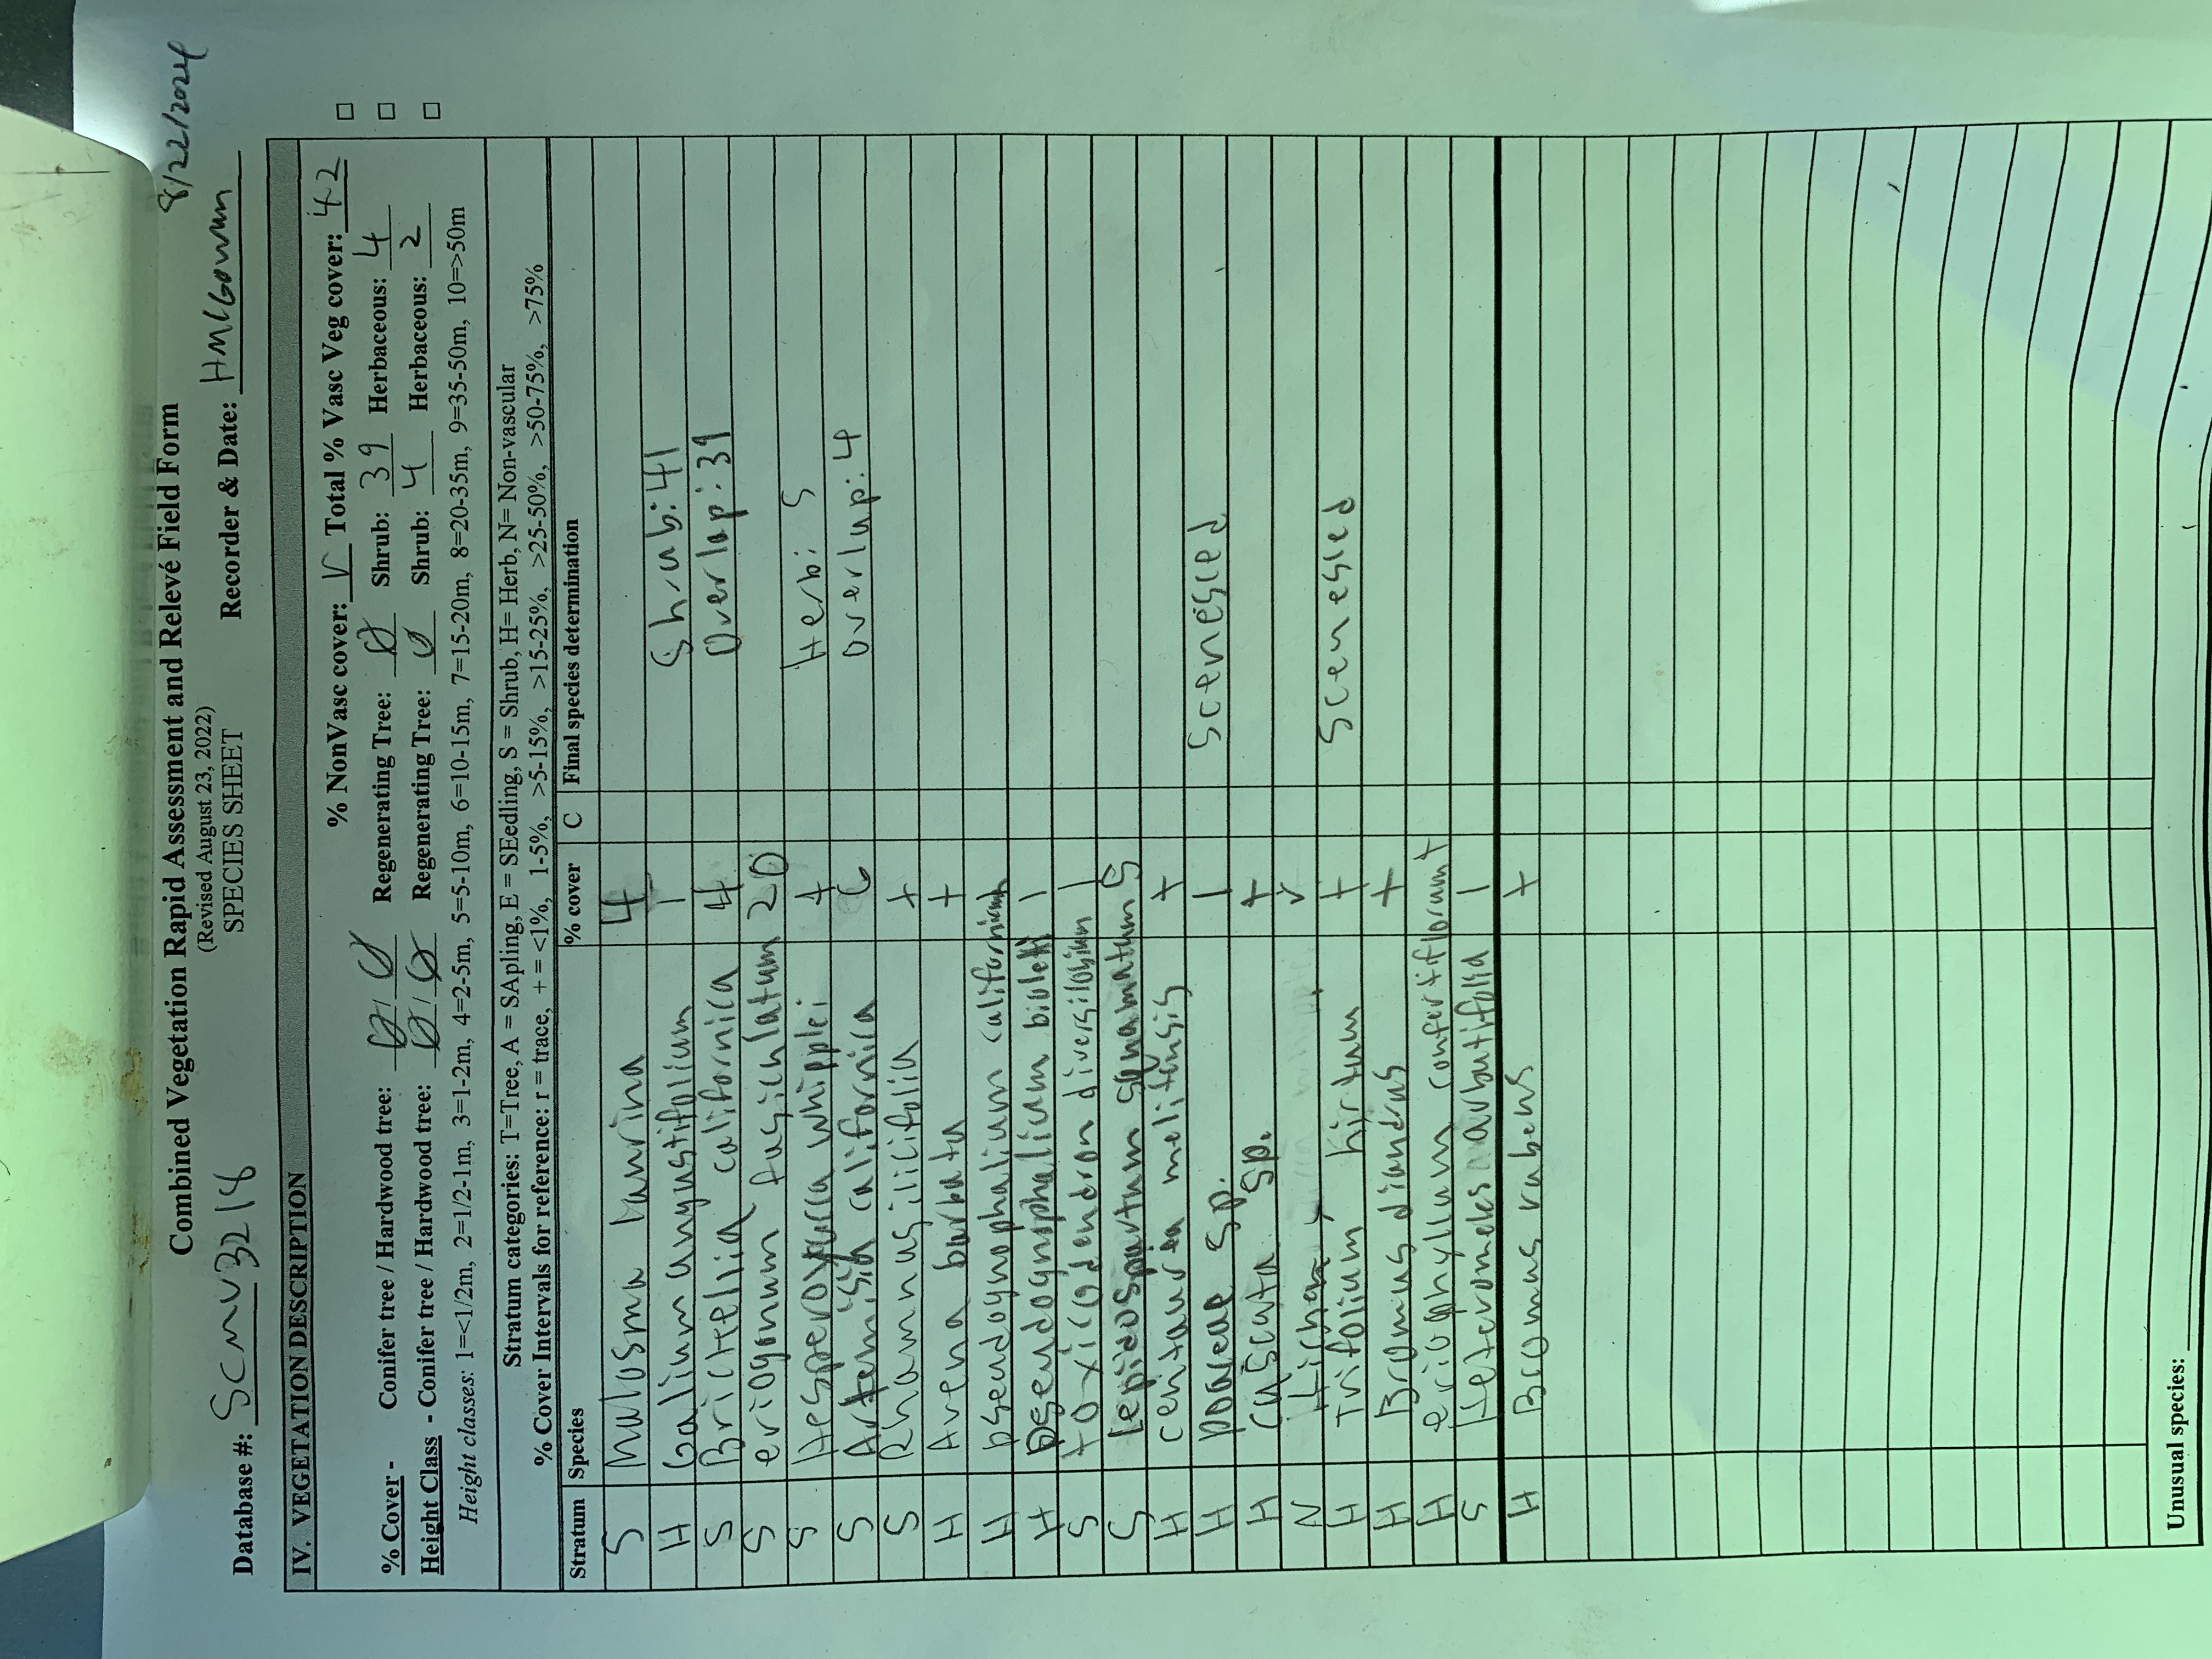 Combined Vegetation Rapid Assessment and Relevé Field Form
8/22/2024
(Revised August 23, 2022)
Database #: SCMV3218 SPECIES SHEET Recorder & Date: HMcGowan
IV. VEGETATION DESCRIPTION
% NonVasc cover: r Total % Vasc Veg cover: 42
% Cover - Conifer tree / Hardwood tree: 0 / 0 Regenerating Tree: 0 Shrub: 39 Herbaceous: 4
Height Class - Conifer tree / Hardwood tree: 0 / 0 Regenerating Tree: 0 Shrub: 4 Herbaceous: 2
Height classes: 1=<1/2m, 2=1/2-1m, 3=1-2m, 4=2-5m, 5=5-10m, 6=10-15m, 7=15-20m, 8=20-35m, 9=35-50m, 10=>50m
Stratum categories: T=Tree, A = SApling, E = SEedling, S = Shrub, H= Herb, N= Non-vascular
% Cover Intervals for reference: r = trace, + = <1%, 1-5%, >5-15%, >15-25%, >25-50%, >50-75%, >75%
Stratum Species % cover C Final species determination
S Malosma laurina 4
H Galium angustifolium 1 Shrub: 41
S Brickellia californica 4 Overlap: 39
S eriogonum fasciculatum 20
S Hesperoyucca whipplei + Herb: 5
S Artemisia californica 6 Overlap: 4
S Rhamnus ilicifolia +
H Avena barbata +
H pseudognaphalium californicum
H Pseudognaphalium biolettii 1
S toxicodendron diversilobum 1
S Lepidospartum squamatum 5
H centaurea melitensis +
H poaceae sp. 1 Scenesced
H cuscuta sp. +
N lichen r
H Trifolium hirtum + Scenesced
H Bromus diandrus +
H eriophyllum confertiflorum +
S Heteromeles arbutifolia 1
H Bromus rubens +
Unusual species: